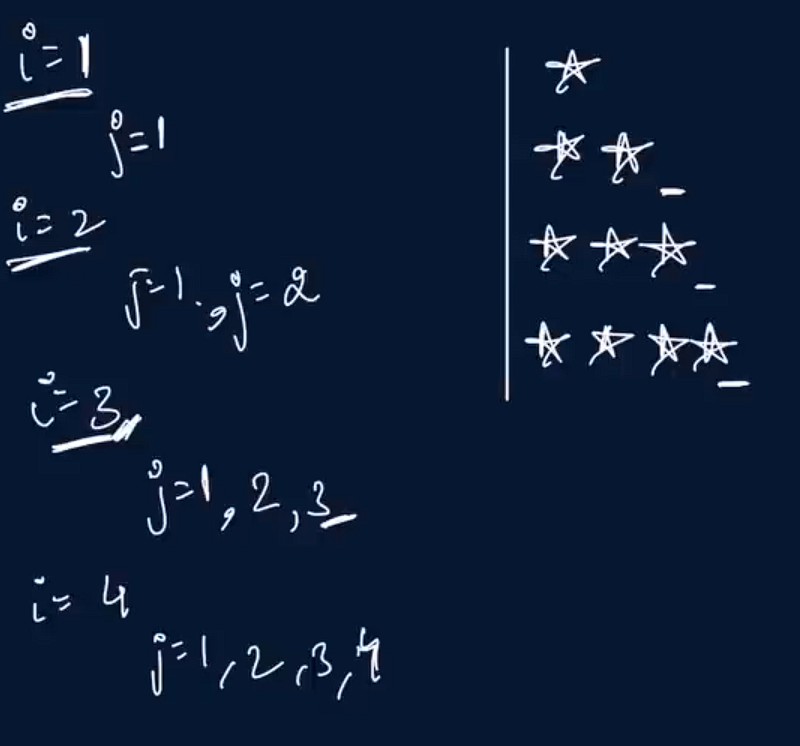 i=1
j=1
i=2
j=1, j=2
i=3
j=1,2,3
i=4
j=1,2,3,4